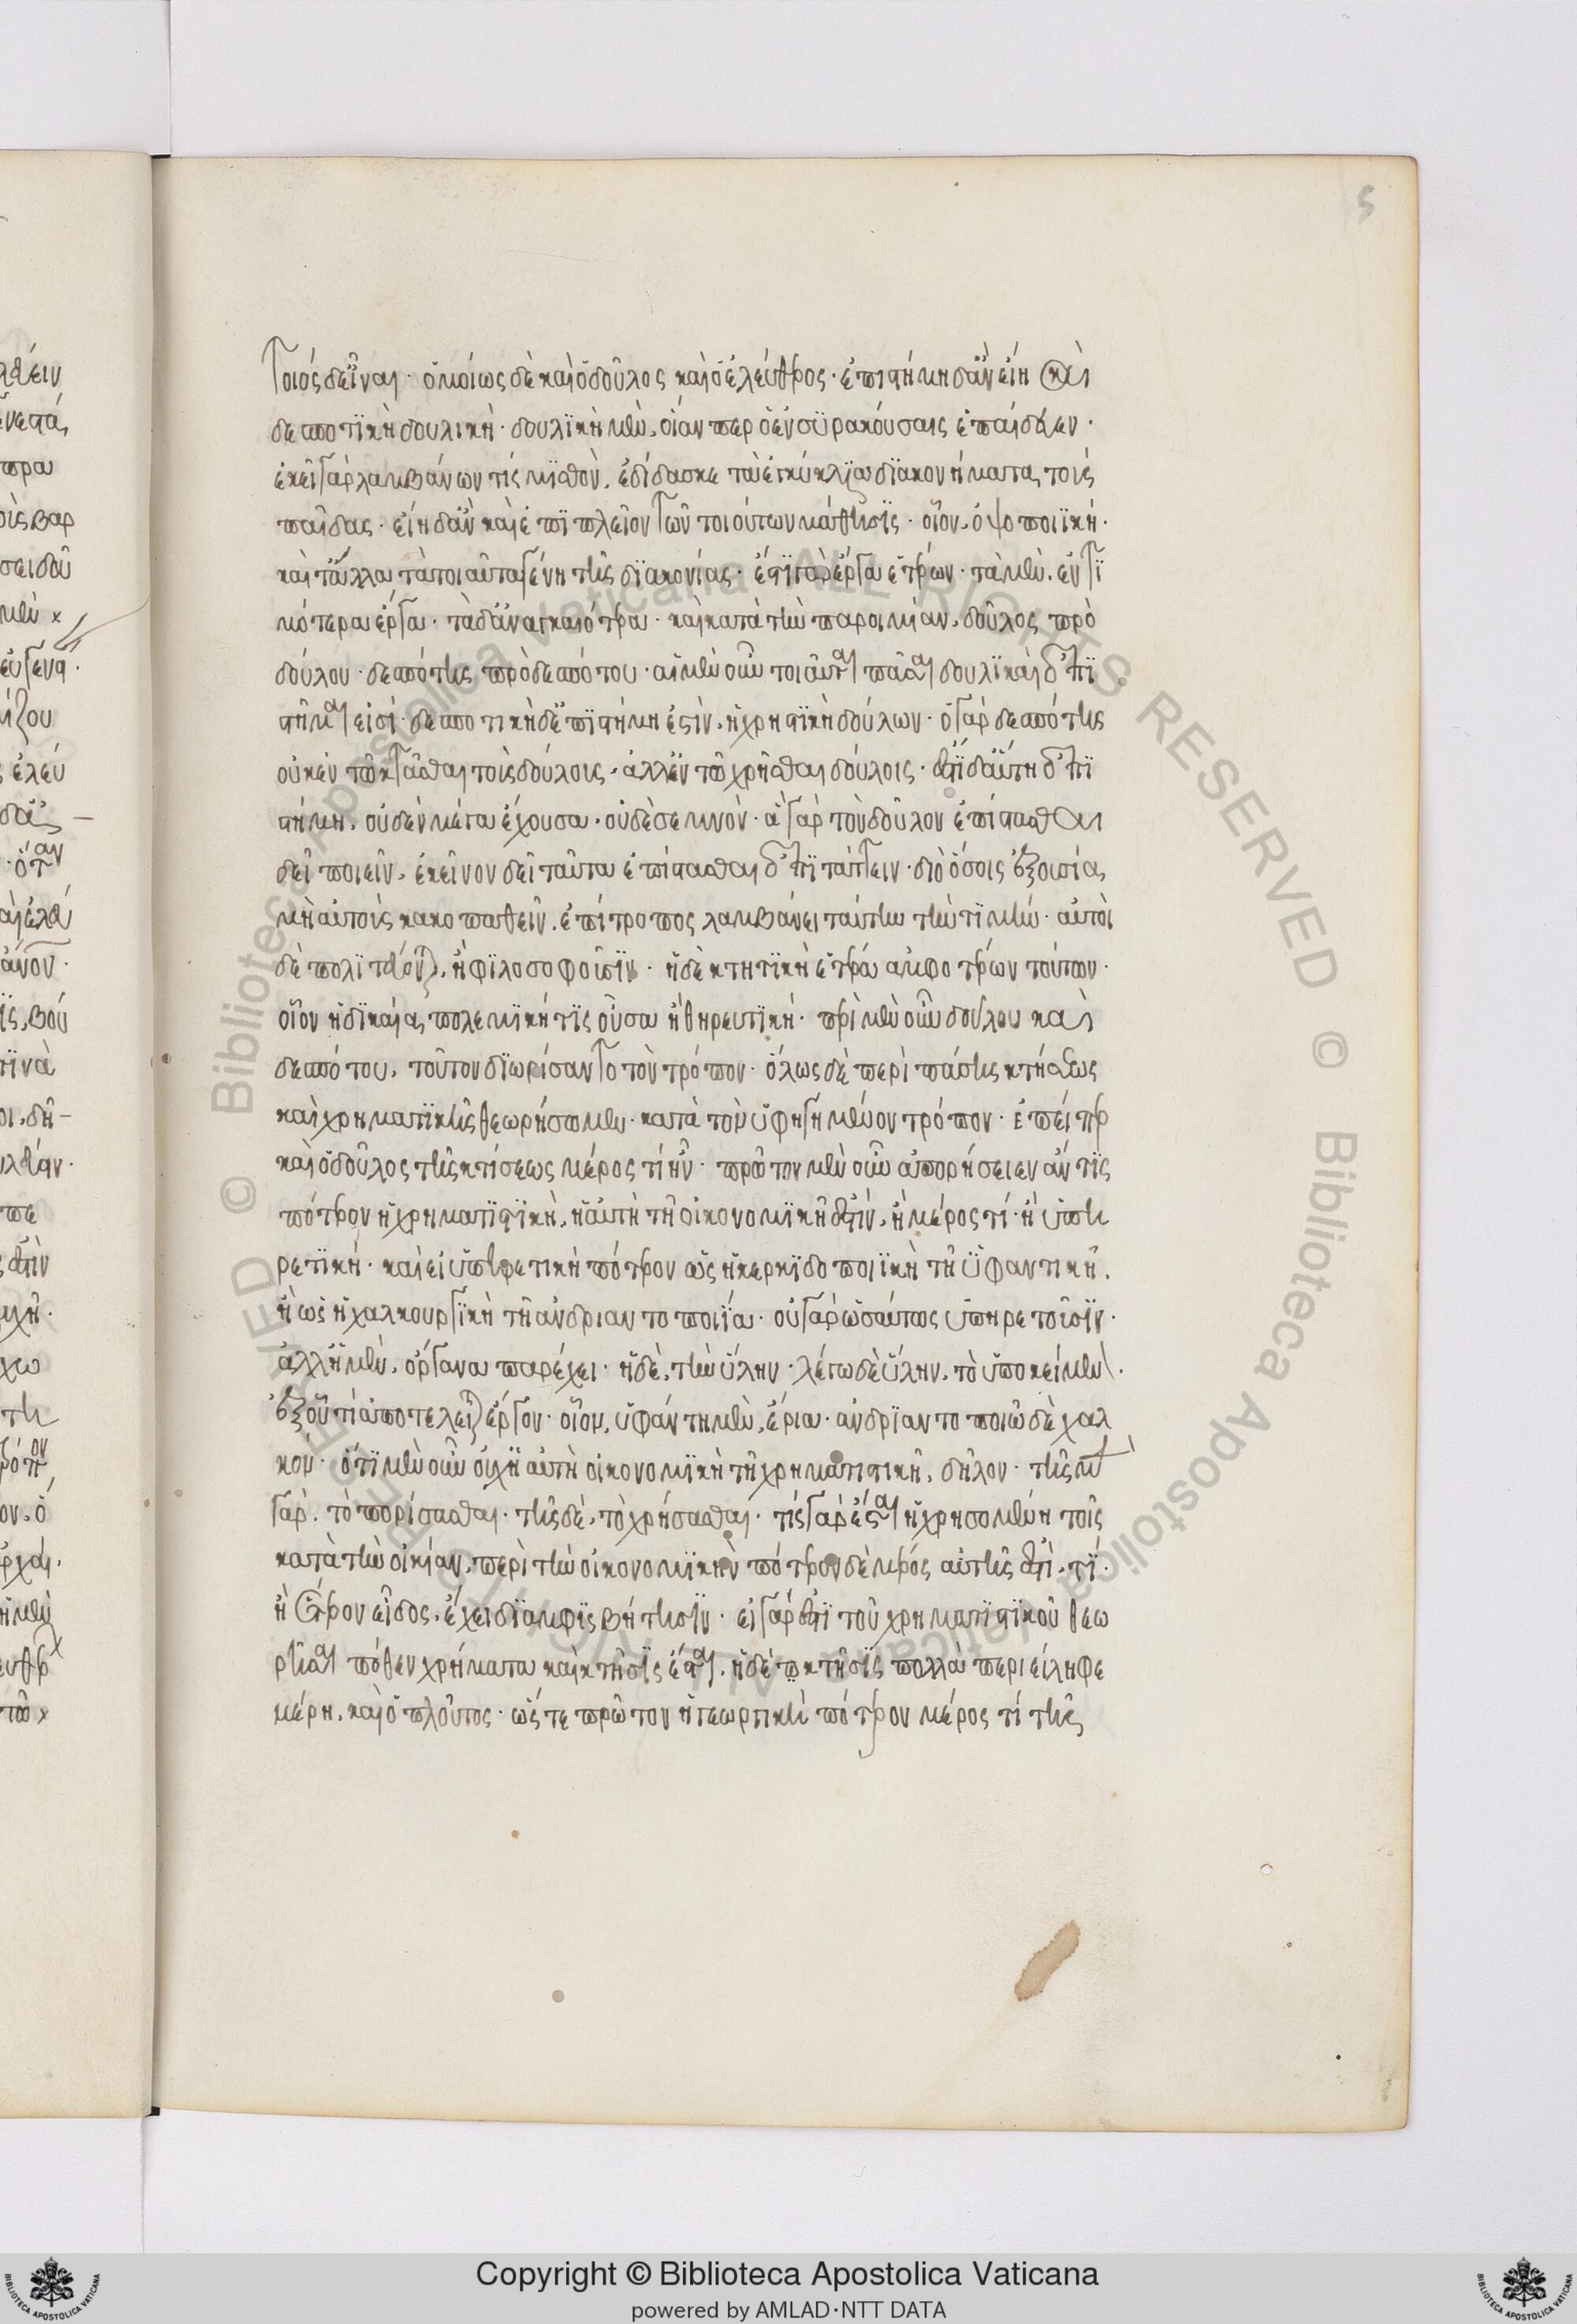 τοιόσδε εἶναι· ὁμοίως δὲ καὶ ὁ δοῦλος καὶ ὁ ἐλεύθερος· ἐπιστήμη δ' ἂν εἴη καὶ
δεσποτικὴ δουλικὴ· δουλικὴ μὲν, οἵαν περ ὁ ἐν συρακούσαις ἐπαίδευεν·
ἐκεῖ γὰρ λαμβάνων τίς μισθὸν, ἐδίδασκε τὰ ἐγκύκλια διακονήματα τοὺς
παῖδας· εἴη δ' ἂν καὶ ἐπὶ πλεῖον τῶν τοιούτων μάθησις· οἷον, ὀψοποιϊκή·
καὶ τἄλλα τὰ τοιαῦτα γένη τῆς διακονίας· ἔστι γὰρ ἔργα ἑτέρων· τὰ μὲν, ἐντι
μότερα ἔργα· τὰ δ' ἀναγκαιότερα· καὶ κατὰ τὴν παροιμίαν, δοῦλος πρὸ
δούλου· δεσπότης πρὸ δεσπότου· αἱ μὲν οὖν τοιαῦται πᾶσαι δουλικαὶ ἐπι
στῆμαι εἰσί· δεσποτικὴ δ' ἐπιστήμη ἐστὶν, ἡ χρηστικὴ δούλων· ὁ γὰρ δεσπότης
οὐκ ἐν τῷ κτᾶσθαι τοὺς δούλους, ἀλλ' ἐν τῷ χρῆσθαι δούλοις· ἔστι δ' αὕτη ἐπι
στήμη, οὐδὲν μέγα ἔχουσα, οὐδὲ σεμνὸν· ἃ γὰρ τὸν δοῦλον ἐπίστασθαι
δεῖ ποιεῖν, ἐκεῖνον δεῖ ταῦτα ἐπίστασθαι ἐπιτάττειν· διὸ ὅσοις ἐξουσία
μὴ αὐτοὺς κακοπαθεῖν, ἐπίτροπος λαμβάνει ταύτην τὴν τιμήν· αὐτοὶ
δὲ πολιτεύονται, ἢ φιλοσοφοῦσιν· ἡ δὲ κτητικὴ ἑτέρα ἀμφοτέρων τούτων·
οἷον ἡ δικαία, πολεμική τις οὖσα ἢ θηρευτική· περὶ μὲν οὖν δούλου καὶ
δεσπότου, τοῦτον διωρίσαντο τὸν τρόπον· ὅλως δὲ περὶ πάσης κτήσεως
καὶ χρηματικῆς θεωρήσωμεν· κατὰ τὸν ὑφηγημένον τρόπον· ἐπείπερ
καὶ ὁ δοῦλος τῆς κτίσεως μέρος τί ἦν· πρῶτον μὲν οὖν ἀπορήσειεν ἄν τις
πότερον ἡ χρηματιστικὴ, ἡ αὐτὴ τῇ οἰκονομικῇ ἐστὶν, ἢ μέρος τί· ἢ ὑπη
ρετική· καὶ εἰ ὑπηρετικὴ πότερον ὡς ἡ κερκιδοποιϊκὴ τῇ ὑφαντικῇ,
ἢ ὡς ἡ χαλκουργικὴ τῇ ἀνδριαντοποιΐα· οὐ γὰρ ὡσαύτως ὑπηρετοῦσιν·
ἀλλ' ἡ μὲν, ὄργανα παρέχει· ἡ δὲ, τὴν ὕλην· λέγω δὲ ὕλην, τὸ ὑποκείμενον·
ἐξ οὗ τὶ ἀποτελεῖται ἔργον· οἷον, ὑφάντη μὲν, ἔρια· ἀνδριαντοποιῷ δὲ χαλ
κόν· ὅτι μὲν οὖν οὐχ ἡ αὐτὴ οἰκονομικὴ τῇ χρηματιστικῇ, δῆλον· τῆς μὲν
γὰρ, τὸ πορίσασθαι· τῆς δὲ, τὸ χρήσασθαι· τίς γὰρ ἔσται ἡ χρησομένη τοῖς
κατὰ τὴν οἰκίαν, περὶ τὴν οἰκονομικὴν πότερον δὲ μέρος αὐτῆς ἐστὶ, τί·
ἢ ἕτερον εἶδος, ἔχει διαμφισβήτησιν· εἰ γάρ ἐστι τοῦ χρηματιστικοῦ θεω
ρῆσαι πόθεν χρήματα καὶ κτῆσις ἔσται, ἡ δέ κτῆσις πολλὰ περιείληφε
μέρη, καὶ ὁ πλοῦτος· ὥς τε πρῶτον ἡ γεωργικὴ πότερον μέρος τί τῆς
Copyright © Biblioteca Apostolica Vaticana
powered by AMLAD·NTT DATA